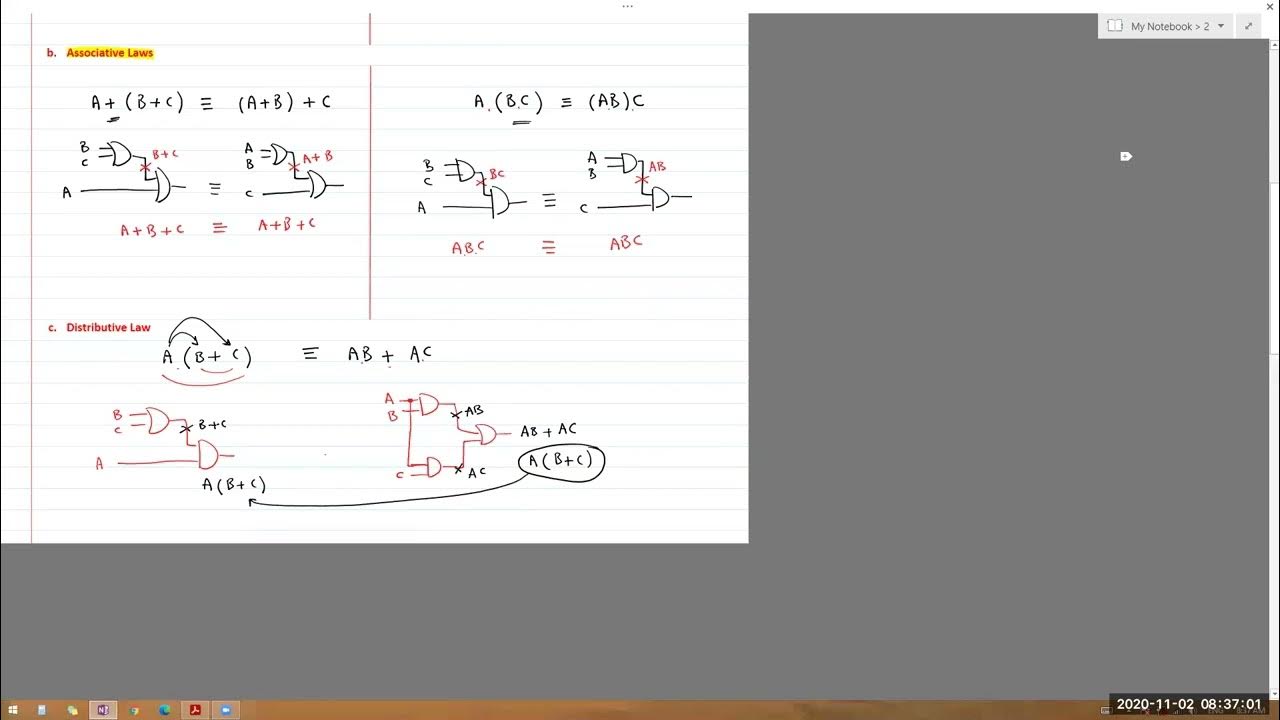 ...
My Notebook > 2
b. Associative Laws
A + (B+C) ≡ (A+B) + C
A.(B.C) ≡ (A.B).C
B
C
B+C
A
≡
A
B
A+B
C
A+B+C ≡ A+B+C
B
C
BC
A
≡
A
B
AB
C
A.B.C ≡ ABC
c. Distributive Law
A.(B + C) ≡ A.B + A.C
B
C
B+C
A
A(B+C)
A
B
AB
C
AC
AB + AC
A(B+C)
2020-11-02 08:37:01